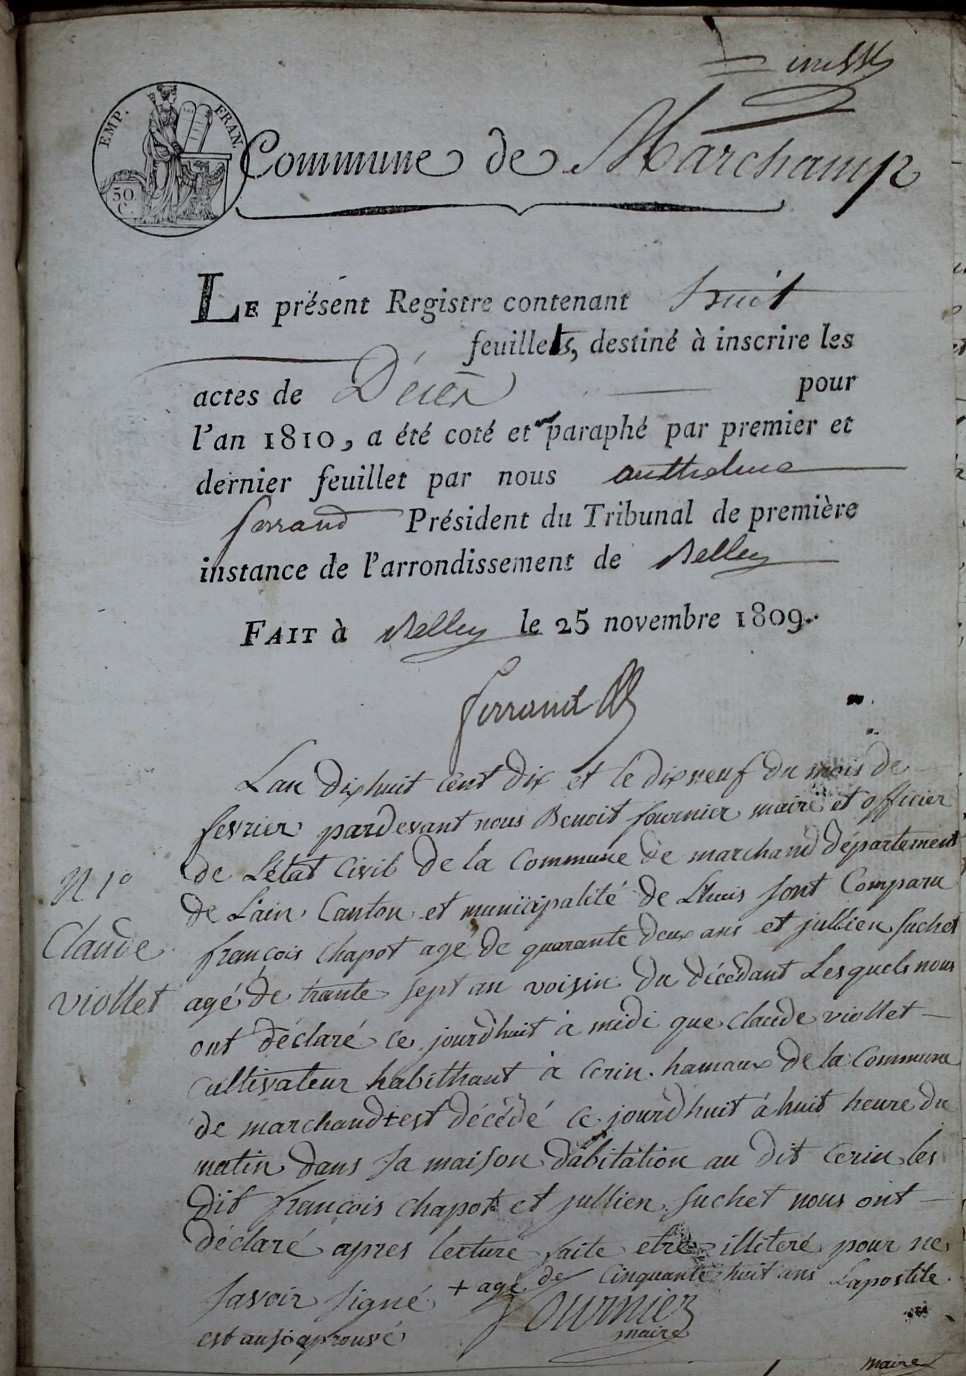 EMP. FRAN.
50
C.
Commune de Marchamp
LE présent Registre contenant huit
feuillets, destiné à inscrire les
actes de Décès pour
l'an 1810, a été coté et paraphé par premier et
dernier feuillet par nous anthelme
ferrand Président du Tribunal de première
instance de l'arrondissement de Belley
FAIT à Belley le 25 novembre 1809.
ferrand
Lan dixhuit cent dix et le dixneuf du mois de
fevrier pardevant nous Benoit fournier maire et officier
de Létat Civil de la Commune de marchand département
de Lain Canton et municipalité de Lhuis sont Comparu
françois chapot agé de quarante deux ans et jullien suchet
agé de trante sept an voisin du décedant Lesquels nous
ont déclaré ce jourdhuit à midi que claude viollet
cultivateur habithant à cerin hamaux de la Commune
de marchand + est décédé ce jourdhuit à huit heure du
matin dans sa maison dabitation au dit cerin les
dit françois chapot et jullien suchet nous ont
déclaré apres lecture faite etre illiteré pour ne
savoir signé + agé de Cinquante huit ans Lapostile
est ausi aprouvé
fournier
maire
N 1º
Claude
viollet
maire